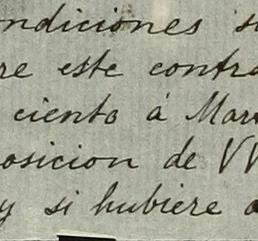 ndiciones s
re este contra
ciento á Mar
osicion de W
y si hubiere a